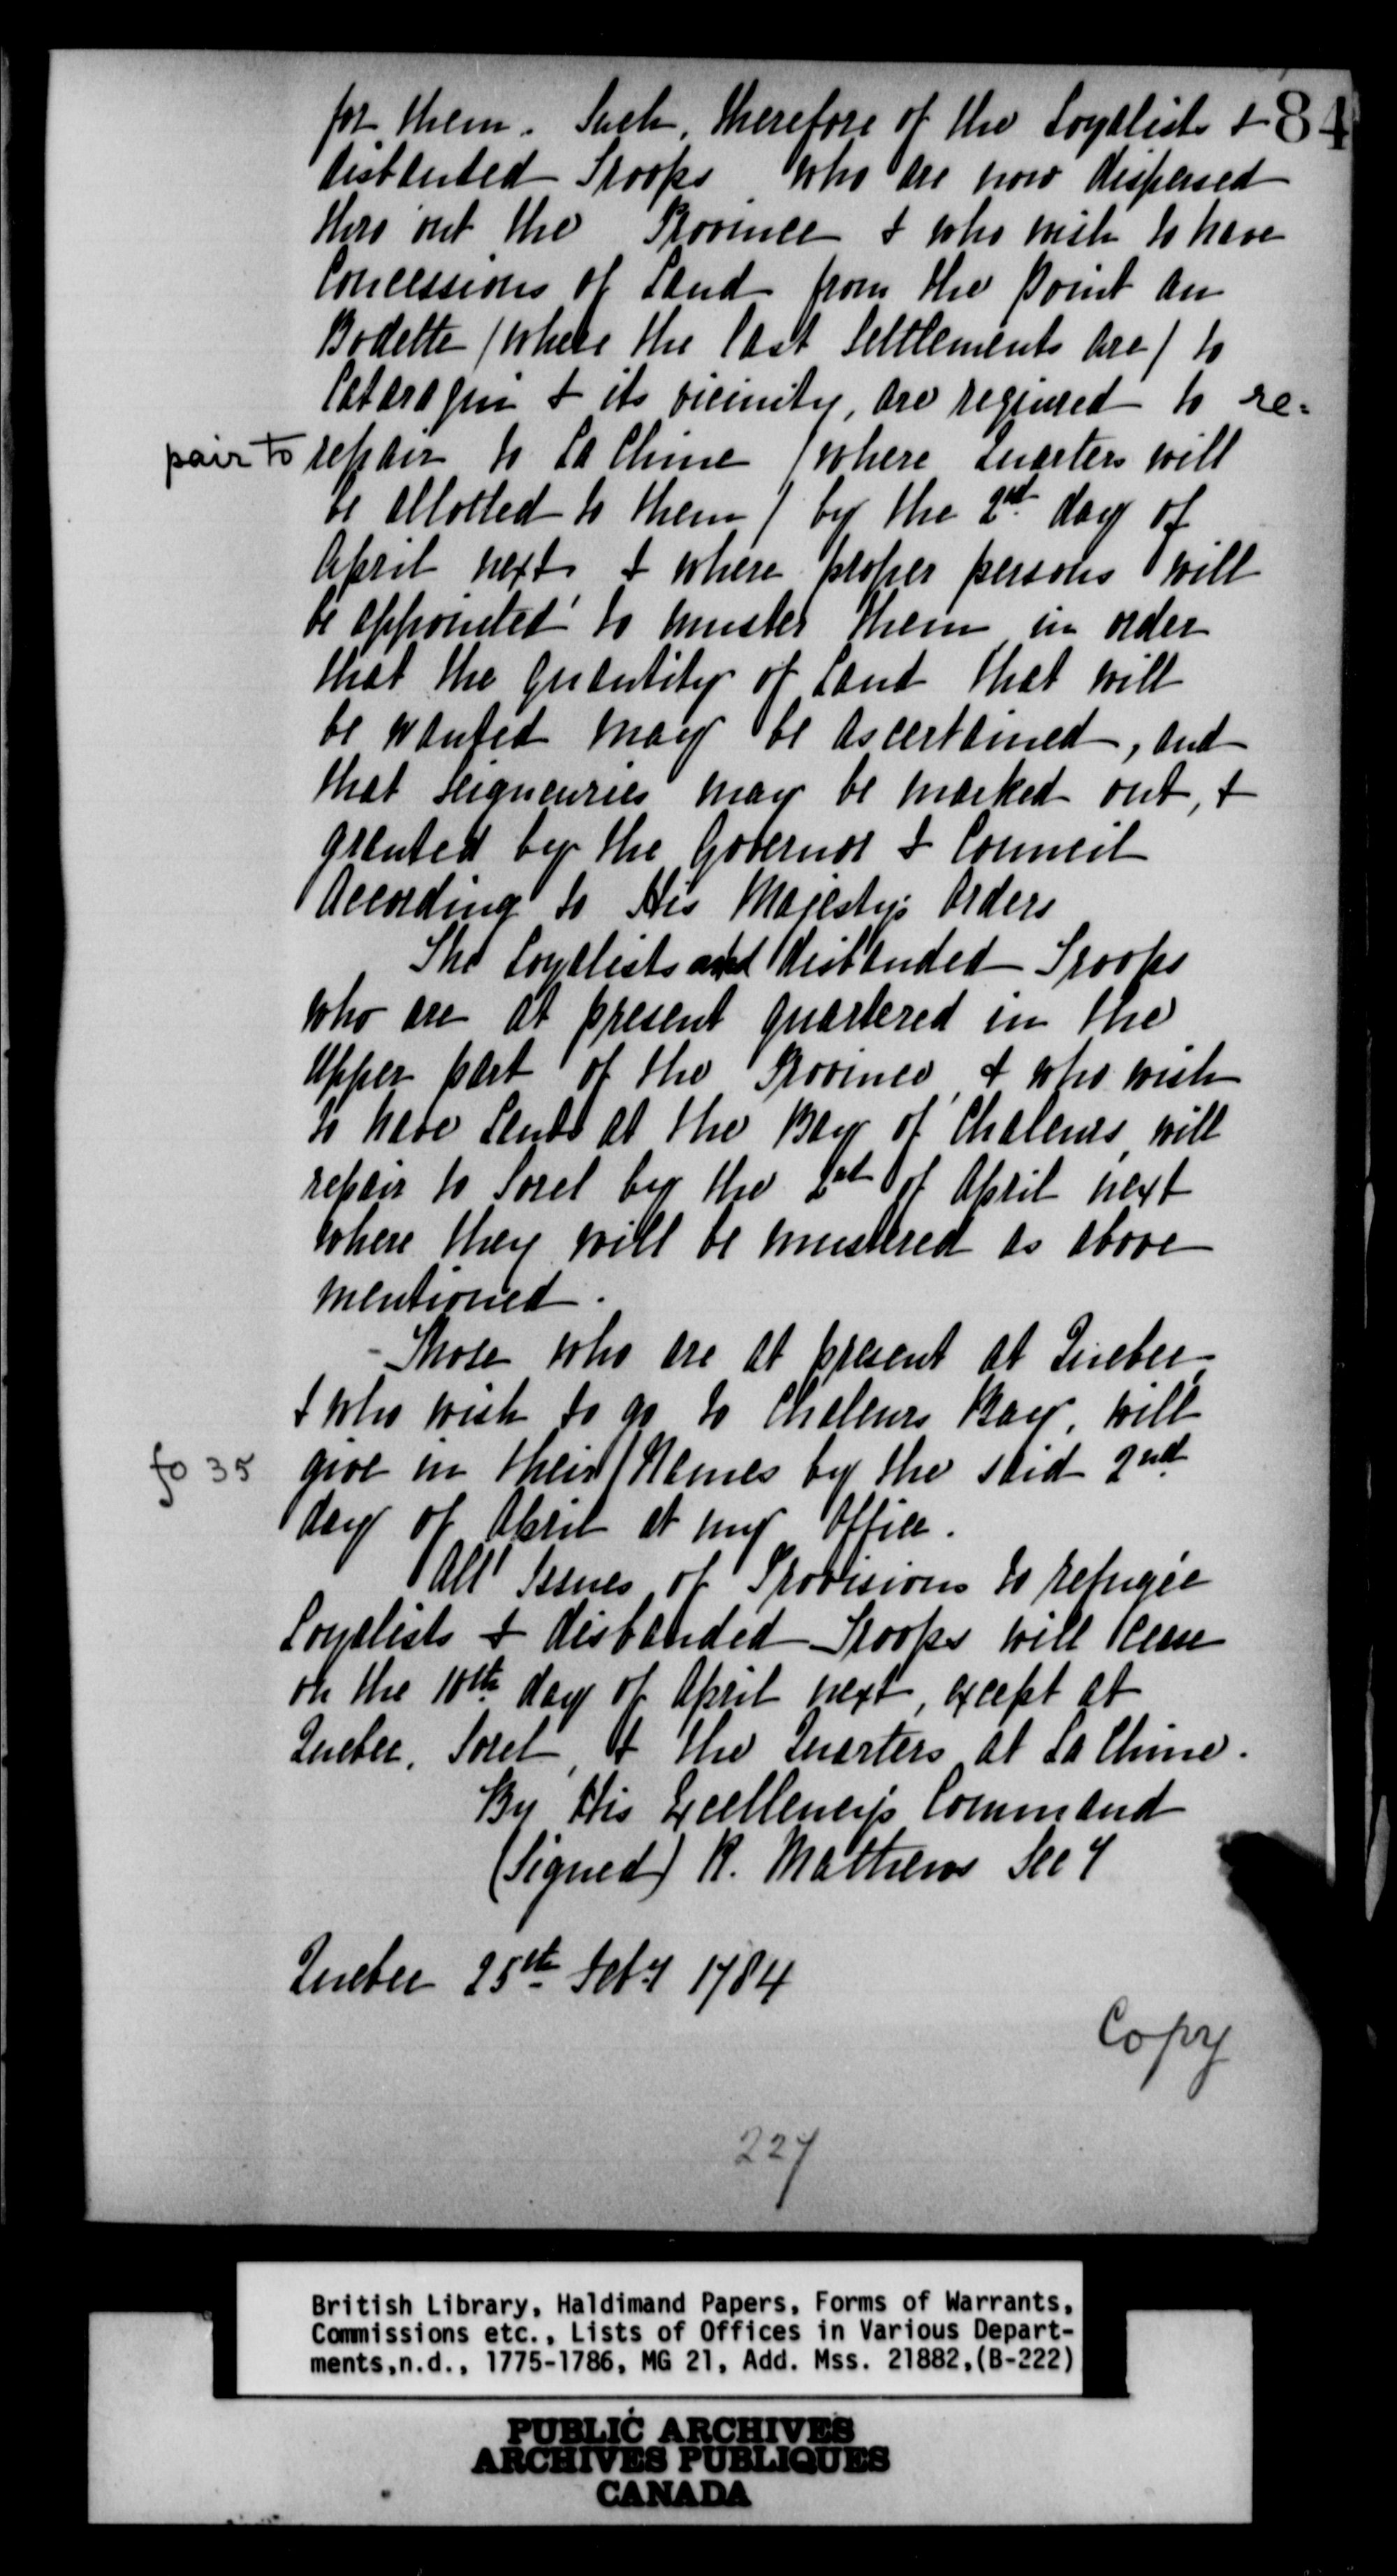 84
for them. Such, therefore of the Loyalists &
disbanded Troops who are now dispersed
thro' out the Province & who wish to have
Concessions of Land from the point au
Bodette (where the last Settlements are) to
Cataraqui & its vicinity, are required to re-
pair to repair to La Chine (where Quarters will
be allotted to them) by the 2d day of
April next & where proper persons will
be appointed to muster them in order
that the quantity of Land that will
be wanted may be ascertained, and
that seigneuries may be marked out, &
granted by the Governor & Council
According to His Majesty's Orders
The Loyalists and disbanded Troops
who are at present quartered in the
Upper part of the Province, & who wish
to have Lands at the Bay of Chaleurs, will
repair to Sorel by the 2nd of April next
where they will be mustered as above
mentioned.
- Those who are at present at Quebec
& who wish to go to Chaleurs Bay, will
fo 35 give in their Names by the said 2nd
day of April at my Office.
All Issues of Provisions to refugee
Loyalists & disbanded Troops will cease
on the 10th day of April next, except at
Quebec, Sorel, & the Quarters at La Chine.
By His Excellency's Command
(Signed) R. Mathews Secy
Quebec 25th Feby 1784
Copy
227
British Library, Haldimand Papers, Forms of Warrants,
Commissions etc., Lists of Offices in Various Depart-
ments,n.d., 1775-1786, MG 21, Add. Mss. 21882,(B-222)
PUBLIC ARCHIVES
ARCHIVES PUBLIQUES
CANADA